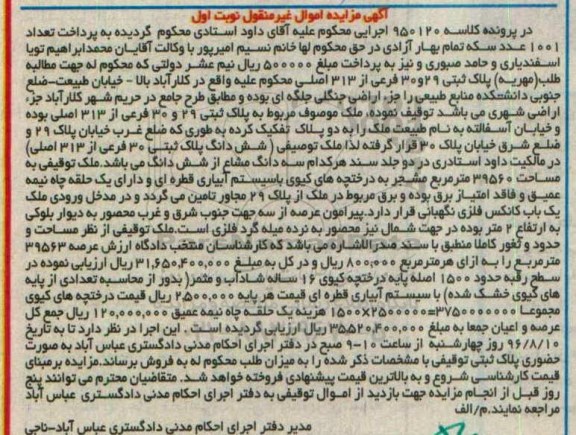 آگهی مزایده اموال غیرمنقول نوبت اول
در پرونده کلاسه ۹۵۰۱۲۰ اجرایی محکوم علیه آقای داود استادی محکوم گردیده به پرداخت تعداد
۱۰۰۱ عدد سکه تمام بهار آزادی در حق محکوم لها خانم نسیم امیرپور با وکالت آقایان محمدابراهیم تویا
اسفندیاری و حامد صبوری و نیز به پرداخت مبلغ ۵۰۰۰۰۰ ریال نیم عشر دولتی که محکوم له جهت مطالبه
طلب(مهریه) پلاک ثبتی ۲۹و۳۰ فرعی از ۳۱۳ اصلی محکوم علیه واقع در کلارآباد بالا - خیابان طبیعت-ضلع
جنوبی دانشکده منابع طبیعی را جزء اراضی جنگلی جلگه ای بوده و مطابق طرح جامع در حریم شهر کلارآباد جزء
اراضی شهری می باشد توقیف نموده. ملک موصوف مربوط به پلاک ثبتی ۲۹ و ۳۰ فرعی از ۳۱۳ اصلی بوده
و خیابان آسفالته به نام طبیعت ملک را به دو پلاک تفکیک کرده به طوری که ضلع غرب خیابان پلاک ۲۹ و
ضلع شرق خیابان پلاک ۳۰ قرار گرفته لذا ملک توصیفی ( شش دانگ پلاک ثبتی ۳۰ فرعی از ۳۱۳ اصلی)
در مالکیت داود استادری در دو جلد سند هرکدام سه دانگ مشاع از شش دانگ می باشد.ملک توقیفی به
مساحت ۳۹۵۶۰ مترمربع مشجر به درختچه های کیوی باسیستم آبیاری قطره ای و دارای یک حلقه چاه نیمه
عمیق و فاقد امتیاز برق بوده و برق مربوط در ملک از پلاک ۲۹ مجاور تامین می گردد و در مدخل ورودی ملک
یک باب کانکس فلزی نگهبانی قرار دارد.پیرامون عرصه از سه جهت جنوب شرق و غرب محصور به دیوار بلوکی
به ارتفاع ۲ متر بوده در جهت شمال نیز محصور به نرده میله گرد فلزی است.ملک توقیفی از نظر مساحت و
حدود و ثغور کاملا منطبق با سند صدرالاشاره می باشد که کارشناسان منتخب دادگاه ارزش عرصه ۳۹۵۶۳
مترمربع را به ازای هرمترمربع ۸۰۰٫۰۰۰ ریال و در کل به مبلغ ۳۱٫۶۵۰٫۴۰۰٫۰۰۰ ریال ارزیابی نموده در
سطح رقبه حدود ۱۵۰۰ اصله پایه درختچه کیوی ۱۶ ساله شاداب و مثمر( بدور از محاسبه تعدادی از پایه
های کیوی خشک شده) با سیستم آبیاری قطره ای قیمت هر پایه ۲٫۵۰۰٫۰۰۰ ریال قیمت درختچه های کیوی
مجموعا ۳۷۵۰۰۰۰۰۰۰=۲۵۰۰۰۰۰×۱۵۰۰ هزینه یک حلقه چاه نیمه عمیق ۱۲۰٫۰۰۰٫۰۰۰ ریال جمع کل
عرصه و اعیان جمعا به مبلغ ۳۵۵۲۰٫۴۰۰٫۰۰۰ ریال ارزیابی گردیده است . این اجرا در نظر دارد تا به تاریخ
۹۶/۸/۱۰ روز چهارشنبه از ساعت ۱۰-۹ صبح در دفتر اجرای احکام مدنی دادگستری عباس آباد به صورت
حضوری پلاک ثبتی توقیفی با مشخصات ذکر شده را به میزان طلب محکوم له به فروش برساند.مزایده برمبنای
قیمت کارشناسی شروع و به بالاترین قیمت پیشنهادی فروخته خواهد شد. متقاضیان محترم می توانند پنج
روز قبل از انجام مزایده جهت بازدید از اموال توقیفی به دفتر اجرای احکام مدنی دادگستری عباس آباد
مراجعه نمایند.م/الف
مدیر دفتر اجرای احکام مدنی دادگستری عباس آباد-ناجی